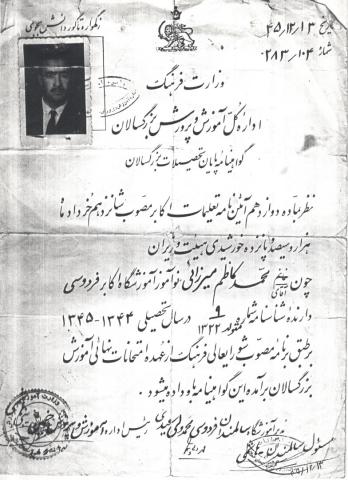 زگهواره تا گور دانش بجوی
تاریخ ۴۵/۱۲/۱۳
شماره ۲۸۳/۱۰۴
وزارت فرهنگ
اداره کل آموزش و پرورش بزرگسالان
گواهینامه پایان تحصیلات بزرگسالان
نظر بماده دوازدهم آئین نامه تعلیمات اکابر مصوب شانزدهم خرداد ماه
هزار و سیصد و پانزده خورشیدی هیئت وزیران
چون آقای محمد کاظم میرزائی نوآموز آموزشگاه اکابر فردوسی
دارنده شناسنامه شماره ۹ متولد ۱۳۲۲ در سال تحصیلی ۱۳۴۴-۱۳۴۵
برطبق برنامه مصوب شورایعالی فرهنگ از عهده امتحانات نهائی آموزش
بزرگسالان برآمده این گواهینامه باو داده میشود.
مدیر آموزشگاه سالمندان فردوسی
رئیس اداره آموزش و پرورش
مسئول سالمندان